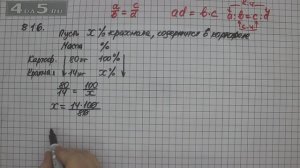 4OR5
a/b = c/d ad = b·c a:b=c:d
к.ч.
с.ч.
816.
Пусть x% крахмала, содержится в картофеле
Масса %
Картоф. 80 кг 100%
Крахмал 14 кг x%
80/14 = 100/x
x = 14·100/80